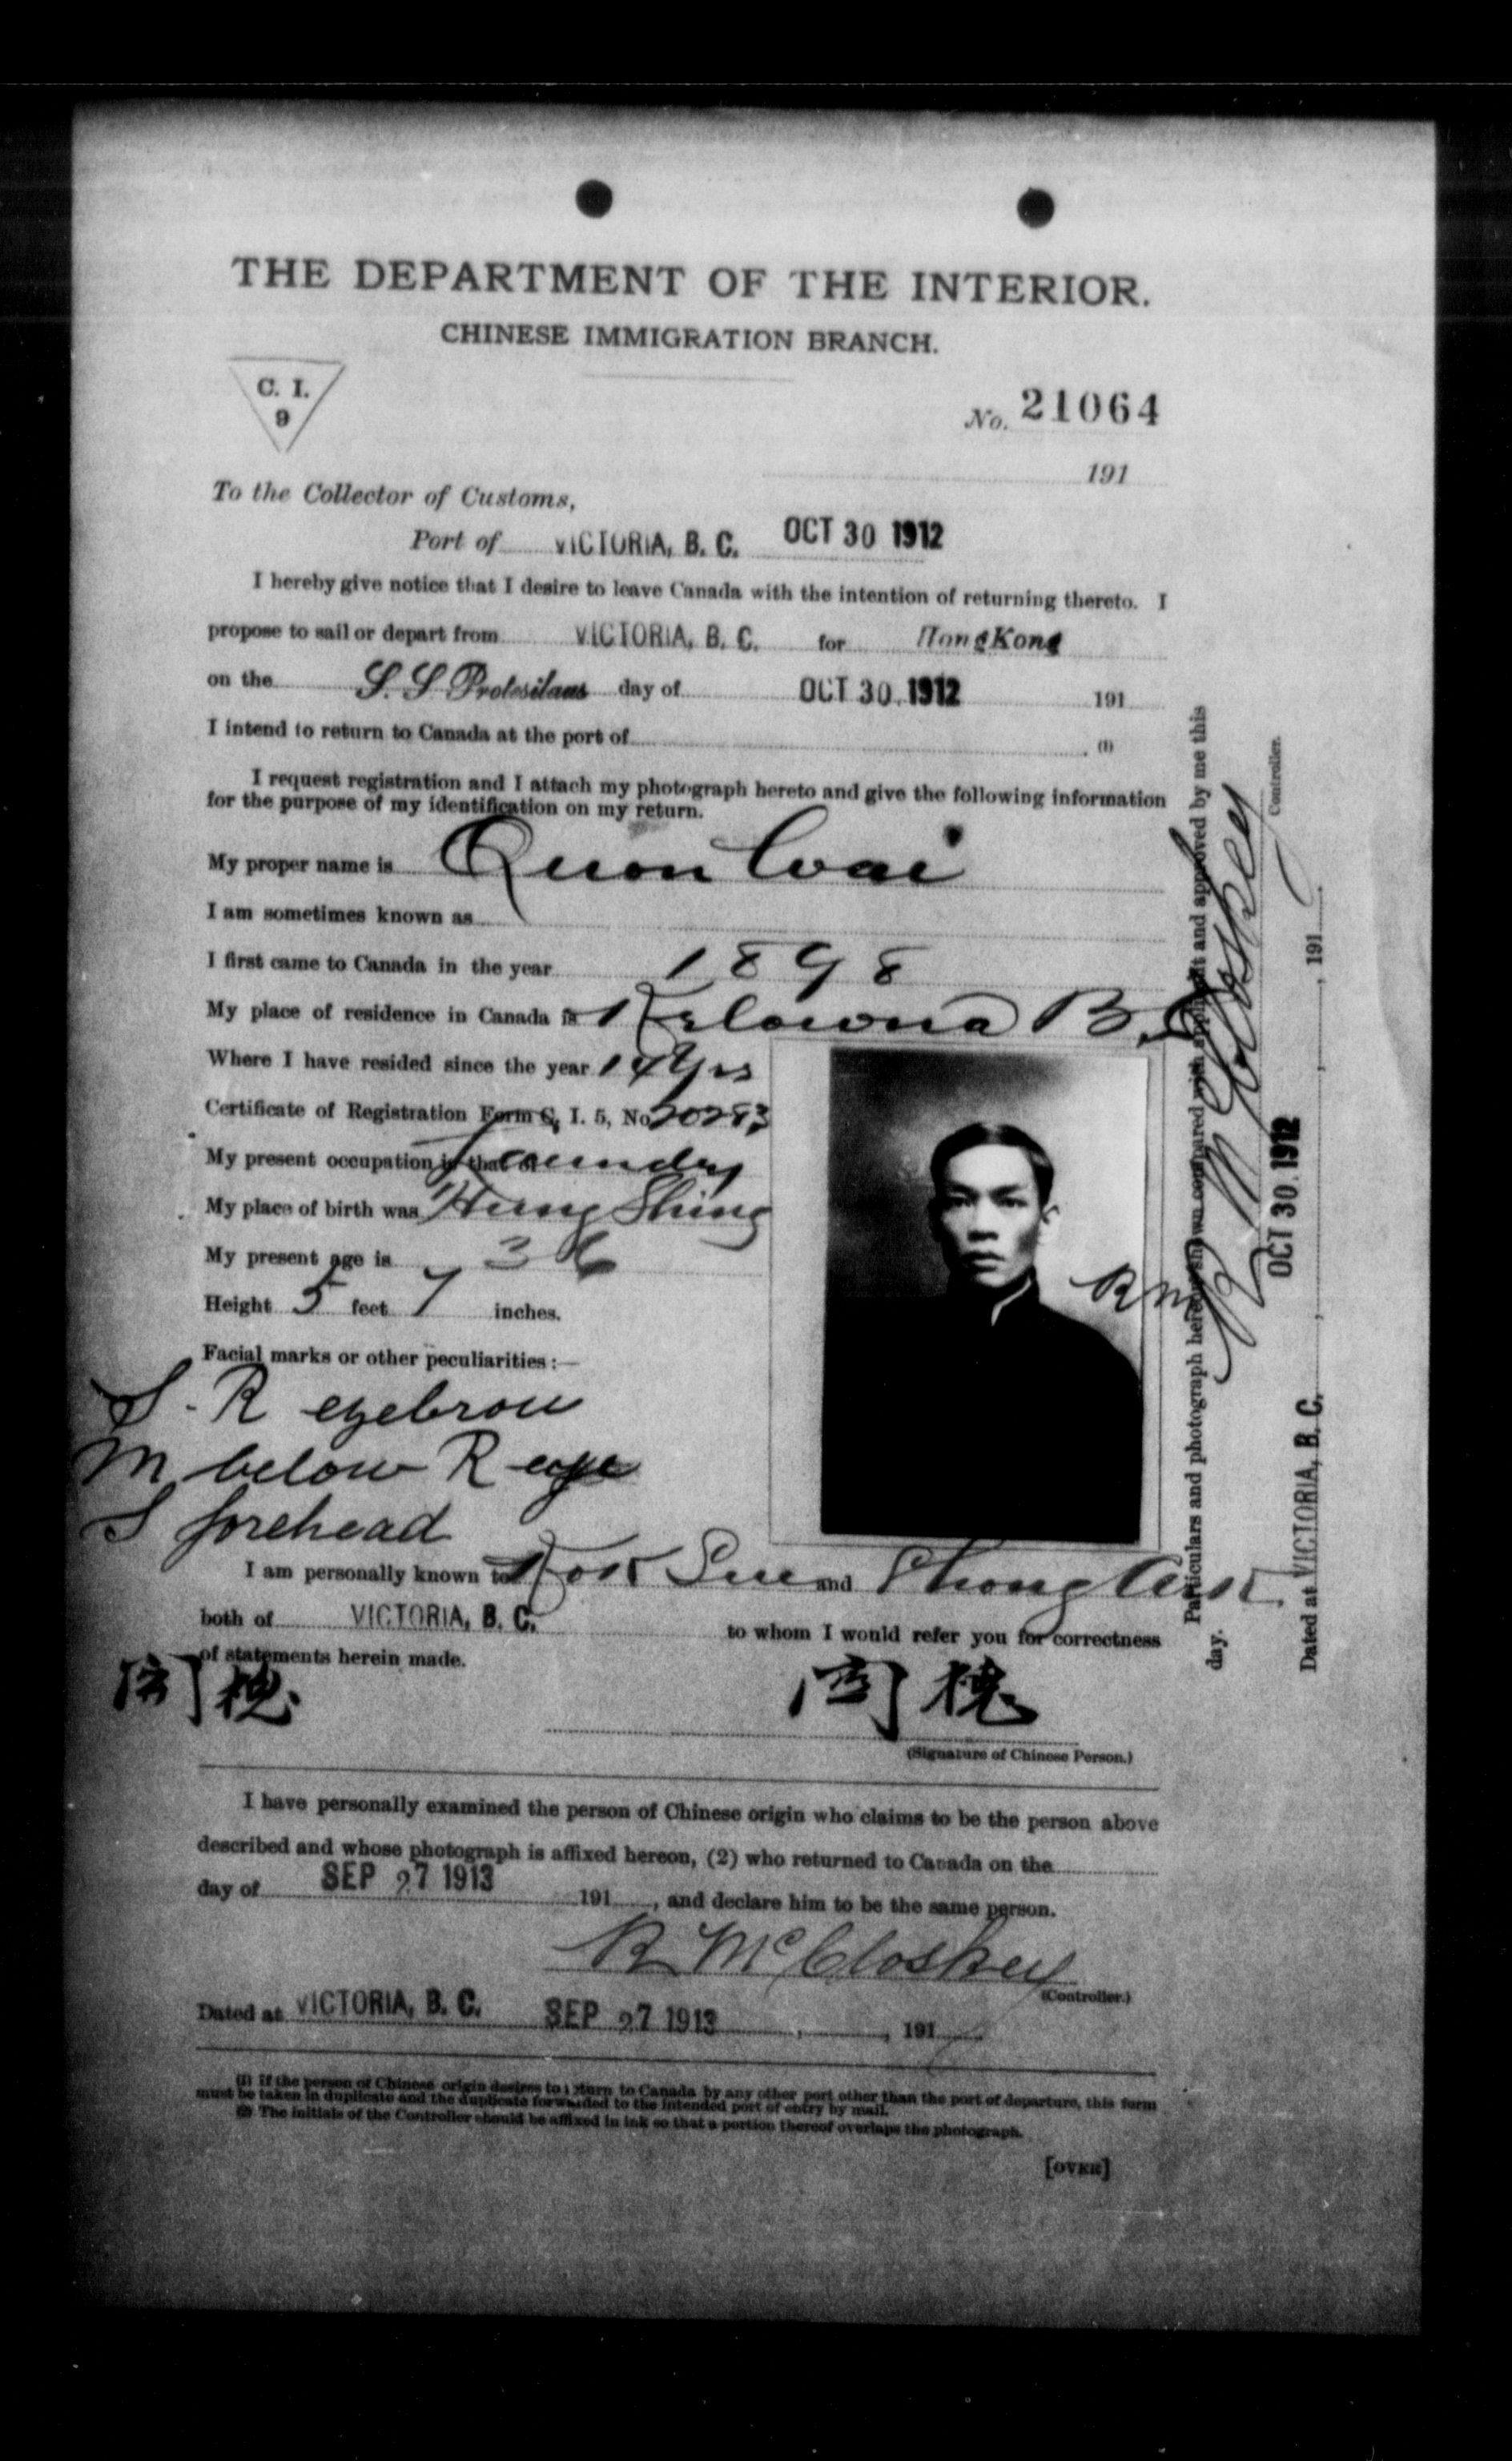 THE DEPARTMENT OF THE INTERIOR.
CHINESE IMMIGRATION BRANCH.
C. I.
9
No. 21064
191
To the Collector of Customs,
Port of VICTORIA, B. C. OCT 30 1912
I hereby give notice that I desire to leave Canada with the intention of returning thereto. I
propose to sail or depart from VICTORIA, B. C. for HongKong
on the S. S Protesilaus day of OCT 30. 1912 191
I intend to return to Canada at the port of . (1)
I request registration and I attach my photograph hereto and give the following information
for the purpose of my identification on my return.
My proper name is Quon Wai
I am sometimes known as
I first came to Canada in the year 1898
My place of residence in Canada is Kelowna B.C
Where I have resided since the year 14 Yrs
Certificate of Registration Form C, I. 5, No 20283
My present occupation is that of Laundry
My place of birth was Hung Shing
My present age is 36
Height 5 feet 7 inches.
Facial marks or other peculiarities :—
S - R eyebrow
M below R eye
S forehead
RM
I am personally known to Sue and
both of VICTORIA, B. C. to whom I would refer you for correctness
of statements herein made.
(Signature of Chinese Person.)
I have personally examined the person of Chinese origin who claims to be the person above
described and whose photograph is affixed hereon, (2) who returned to Canada on the
day of SEP 27 1913 191 , and declare him to be the same person.
R McCloskey
(Controller.)
Dated at VICTORIA, B. C. SEP 27 1913 , , 191
(1) If the person of Chinese origin desires to return to Canada by any other port other than the port of departure, this form
must be taken in duplicate and the duplicate forwarded to the intended port of entry by mail.
(2) The initials of the Controller should be affixed in ink so that a portion thereof overlaps the photograph.
[OVER]
Particulars and photograph hereon shown compared with applicant and approved by me this
day.
R McCloskey
Controller.
OCT 30. 1912
Dated at VICTORIA, B. C. , , 191